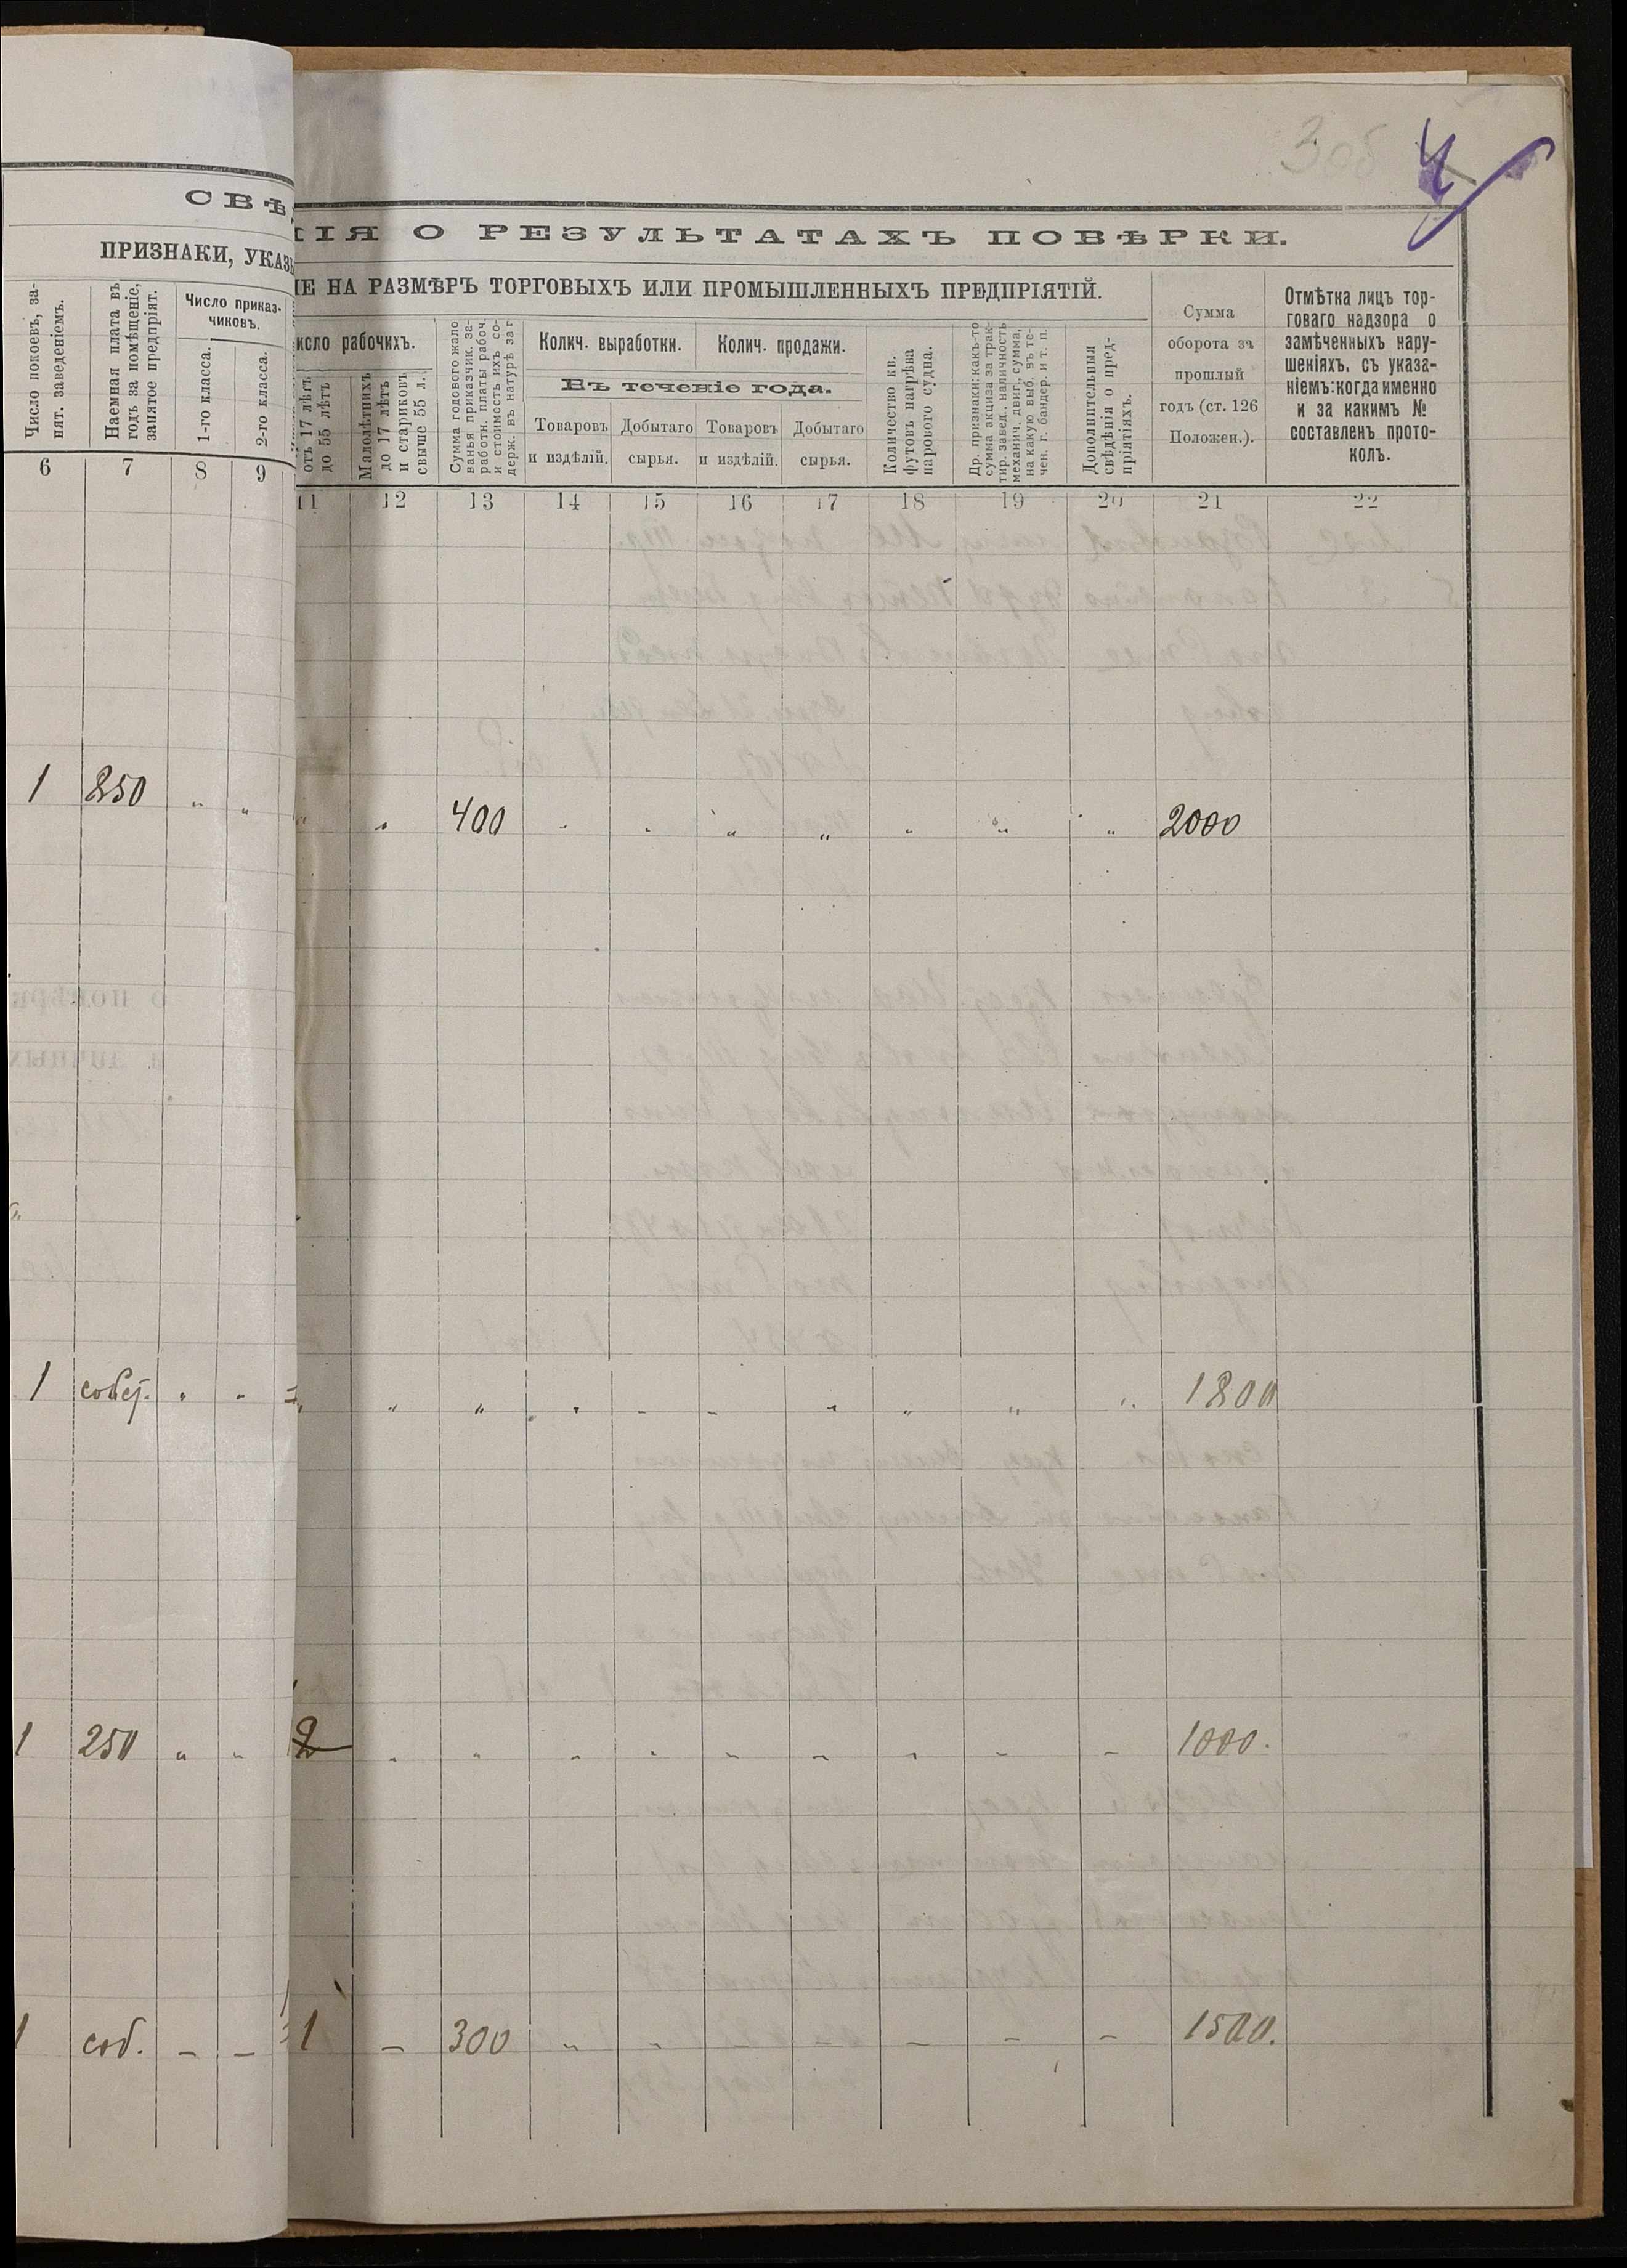 3 об
4
СВѢ
НІЯ О РЕЗУЛЬТАТАХЪ ПОВѢРКИ.
ПРИЗНАКИ, УКАЗЫ
ІЕ НА РАЗМѢРЪ ТОРГОВЫХЪ ИЛИ ПРОМЫШЛЕННЫХЪ ПРЕДПРІЯТІЙ.
Число покоевъ, за-
нят. заведеніемъ.
Наемная плата въ
годъ за помѣщеніе,
занятое предпріят.
Число приказ-
чиковъ.
1-го класса.
2-го класса.
исло рабочихъ.
отъ 17 лѣтъ
до 55 лѣтъ
Малолѣтнихъ
до 17 лѣтъ
и стариковъ
свыше 55 л.
Сумма годового жало
ванья приказчик. за-
работн. платы рабоч.
и стоимость ихъ со-
держ. въ натурѣ за г
Колич. выработки.
Колич. продажи.
Въ теченіе года.
Товаровъ
и издѣлій.
Добытаго
сырья.
Товаровъ
и издѣлій.
Добытаго
сырья.
Количество кв.
футовъ нагрѣва
парового судна.
Др. признаки: какъ-то
сумма акциза за трак-
тир. завед., наличность
механич. двиг., сумма,
на какую выб. въ те-
чен. г. бандер. и т. п.
Дополнительныя
свѣдѣнія о пред-
пріятіяхъ.
Сумма
оборота за
прошлый
годъ (ст. 126
Положен.).
Отмѣтка лицъ тор-
говаго надзора о
замѣченныхъ нару-
шеніяхъ, съ указа-
ніемъ: когда именно
и за какимъ №
составленъ прото-
колъ.
6 7 8 9 11 12 13 14 15 16 17 18 19 20 21 22
1 250 " " " " 400 " " " " " " " 2000
1 собст. " " " " " " " " " " " " 1800
1 250 " " 2 " " " " " " " " " 1000.
1 соб. – – 1 – 300 " " – – – – – 1500.